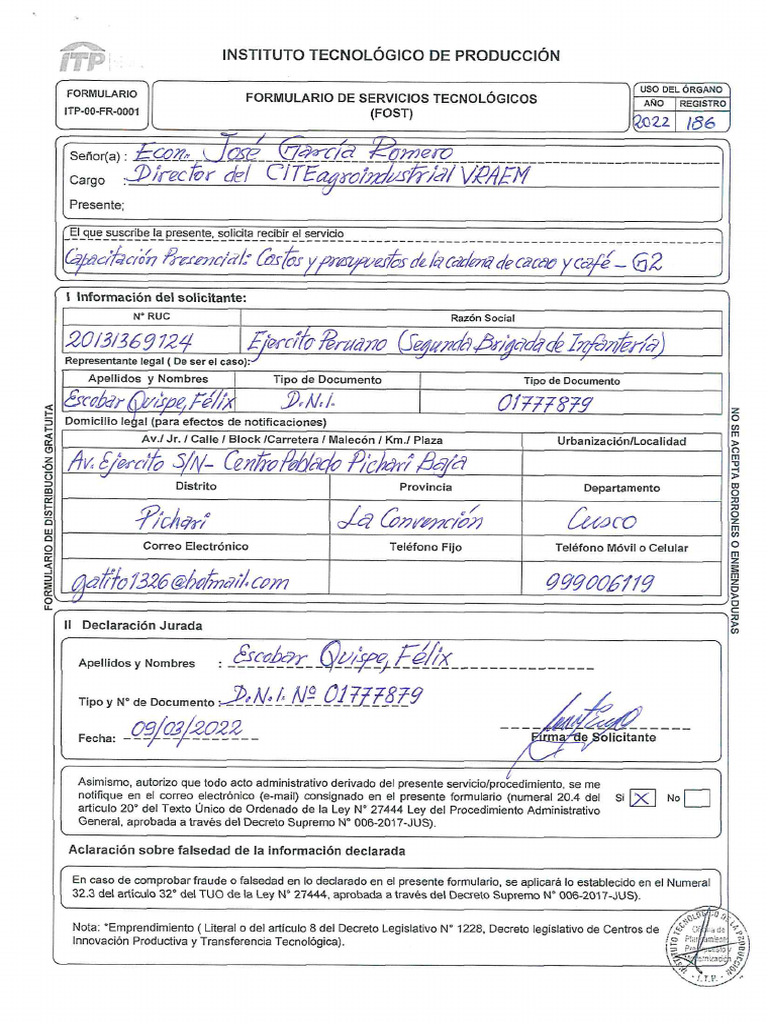 ITP
INSTITUTO TECNOLÓGICO DE PRODUCCIÓN
FORMULARIO
ITP-00-FR-0001
FORMULARIO DE SERVICIOS TECNOLÓGICOS
(FOST)
USO DEL ÓRGANO
AÑO REGISTRO
2022 186
Señor(a) : Econ. José García Romero
Cargo : Director del CITEagroindustrial VRAEM
Presente;
El que suscribe la presente, solicita recibir el servicio
Capacitación Presencial: Costos y presupuestos de la cadena de cacao y café - G2
I Información del solicitante:
N° RUC Razón Social
20131369124 Ejercito Peruano (Segunda Brigada de Infantería)
Representante legal ( De ser el caso):
Apellidos y Nombres Tipo de Documento Tipo de Documento
Escobar Quispe, Félix D.N.I. 01777879
Domicilio legal (para efectos de notificaciones)
Av./ Jr. / Calle / Block /Carretera / Malecón / Km./ Plaza Urbanización/Localidad
Av. Ejercito S/N- Centro Poblado Pichari Baja
Distrito Provincia Departamento
Pichari La Convención Cusco
Correo Electrónico Teléfono Fijo Teléfono Móvil o Celular
gatito1326@hotmail.com 999006119
FORMULARIO DE DISTRIBUCIÓN GRATUITA
NO SE ACEPTA BORRONES O ENMENDADURAS
II Declaración Jurada
Apellidos y Nombres : Escobar Quispe, Félix
Tipo y N° de Documento : D.N.I. Nº 01777879
Fecha: 09/03/2022
Firma de Solicitante
Asimismo, autorizo que todo acto administrativo derivado del presente servicio/procedimiento, se me
notifique en el correo electrónico (e-mail) consignado en el presente formulario (numeral 20.4 del
articulo 20° del Texto Único de Ordenado de la Ley N° 27444 Ley del Procedimiento Administrativo
General, aprobada a través del Decreto Supremo N° 006-2017-JUS).
Si X No
Aclaración sobre falsedad de la información declarada
En caso de comprobar fraude o falsedad en lo declarado en el presente formulario, se aplicará lo establecido en el Numeral
32.3 del artículo 32° del TUO de la Ley N° 27444, aprobada a través del Decreto Supremo N° 006-2017-JUS).
Nota: *Emprendimiento ( Literal o del artículo 8 del Decreto Legislativo N° 1228, Decreto legislativo de Centros de
Innovación Productiva y Transferencia Tecnológica).
INSTITUTO TECNOLÓGICO DE LA PRODUCCIÓN
Oficina de
Planeamiento
Presupuesto y
Modernización
- I.T.P. -